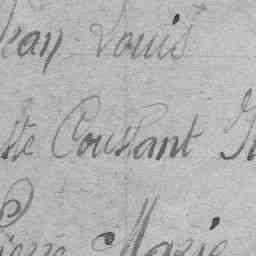 Jean Louis
ste Constant
Pierre Marie